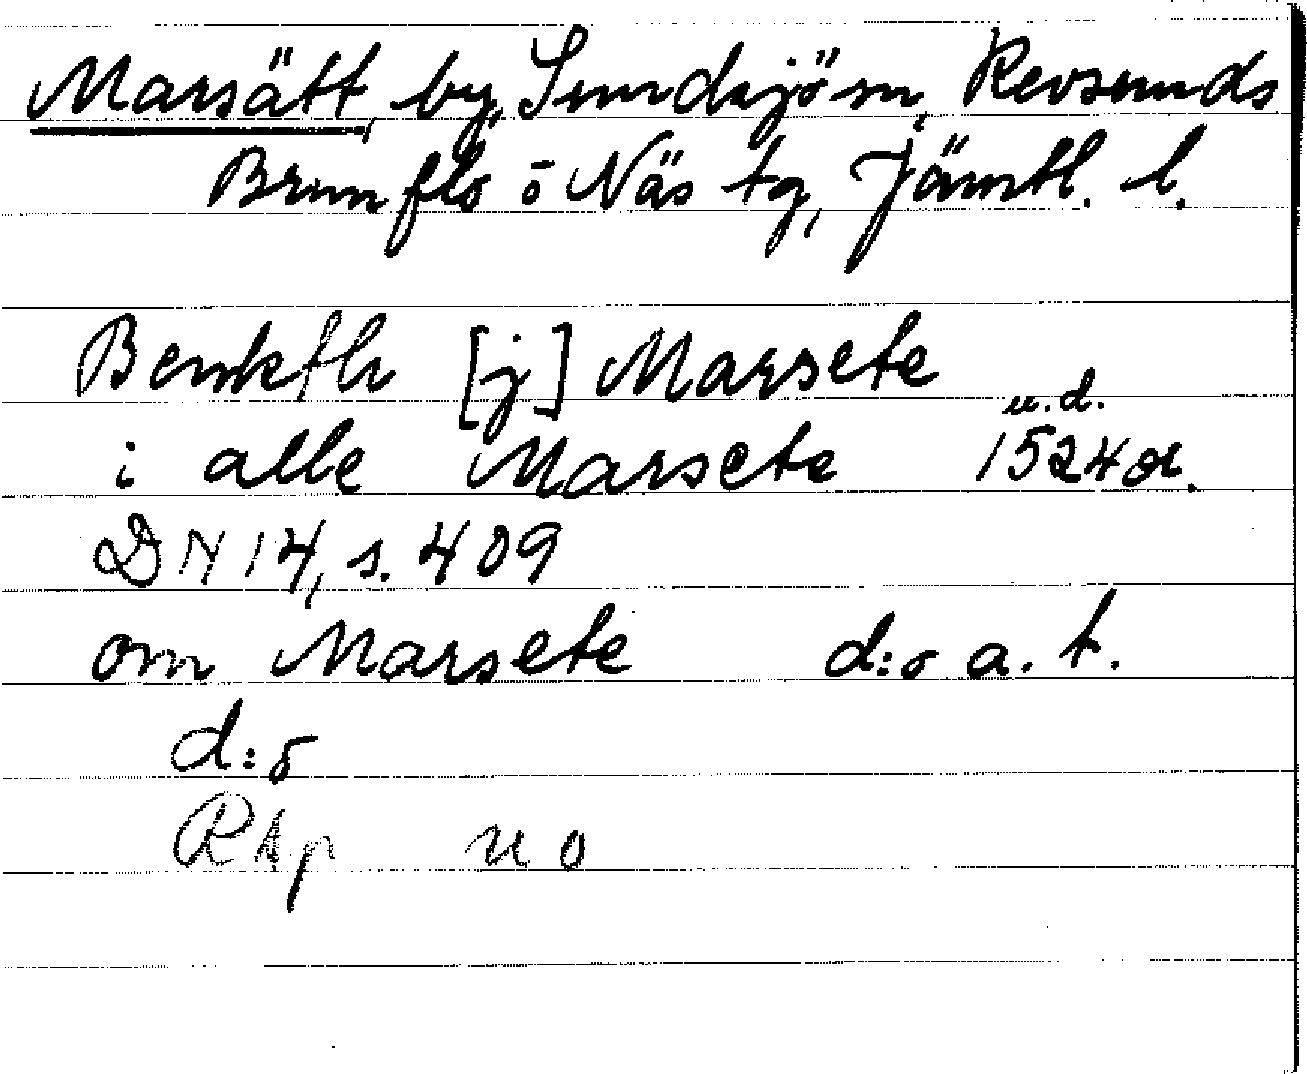 Marsätt, by, Sundsjö sn, Revsunds
Brunflo o Näs tg, Jämtl. l.
Benkth [j] Marsete
u.d.
i alle Marsete 1524 or.
DN 14, s. 409
om Marsete d:o a. t.
d:o
RAp no